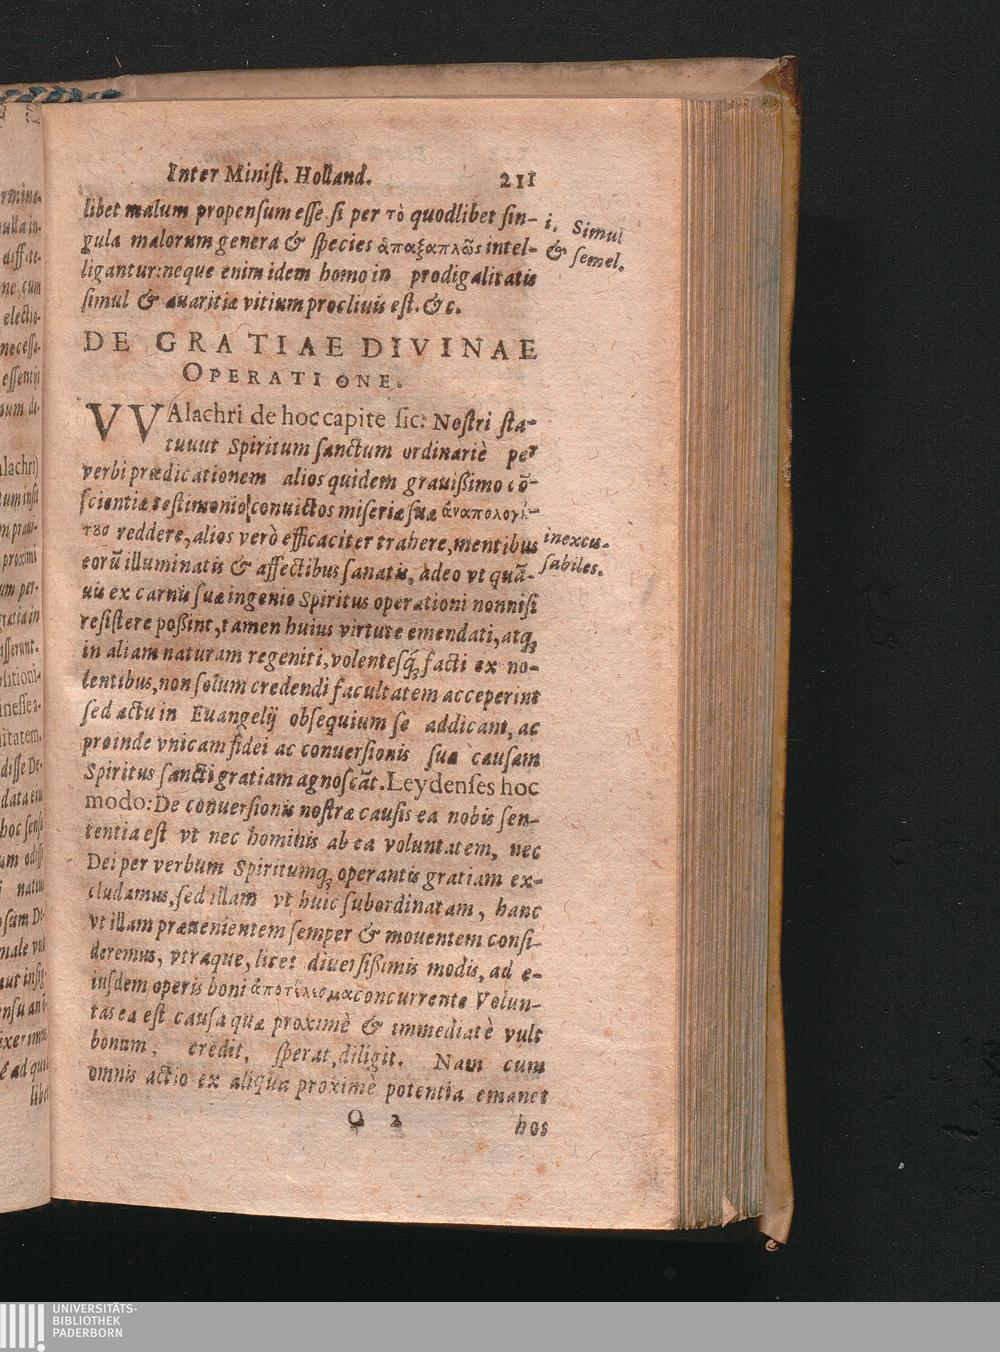 Inter Minist. Holland. 211
libet malum propensum esse. si per τὸ quodlibet sin-
gula malorum genera & species ἁπαξαπλῶς intel-
ligantur: neque enim idem homo in prodigalitatis
simul & auaritiæ vitium procliuis est. &c.
i. Simul
& semel.
DE GRATIAE DIVINAE
OPERATIONE.
VVAlachri de hoc capite sic: Nostri sta-
tuuut Spiritum sanctum ordinariè per
verbi prædicationem alios quidem grauißimo cõ-
scientiæ testimonio convictos miseriæ suæ ἀναπολογή-
τους reddere, alios verò efficaciter trahere, mentibus
eorũ illuminatis & affectibus sanatis, adeo vt quã-
uis ex carnis suæ ingenio Spiritus operationi nonnisi
resistere poßint, tamen huius virtute emendati, atq;
in aliam naturam regeniti, volentesq́; facti ex no-
lentibus, non solum credendi facultatem acceperint
sed actu in Euangelij obsequium se addicant, ac
proinde vnicam fidei ac conuersionis suæ causam
Spiritus sancti gratiam agnoscãt. Leydenses hoc
modo: De conuersionis nostræ causis ea nobis sen-
tentia est vt nec hominis ab ea voluntatem, nec
Dei per verbum Spiritumq; operantis gratiam ex-
cludamus, sed illam vt huic subordinatam, hanc
vt illam præuenientem semper & mouentem consi-
deremus, vtraque, licet diuersißimis modis, ad e-
iusdem operis boni ἀποτέλεσμα concurrente Volun-
tas ea est causa quæ proximè & immediatè vult
bonum, credit, sperat, diligit. Nam cum
omnis actio ex aliqua proximè potentia emanet
inexcu-
sabiles.
O 2 hos
UNIVERSITÄTS-
BIBLIOTHEK
PADERBORN